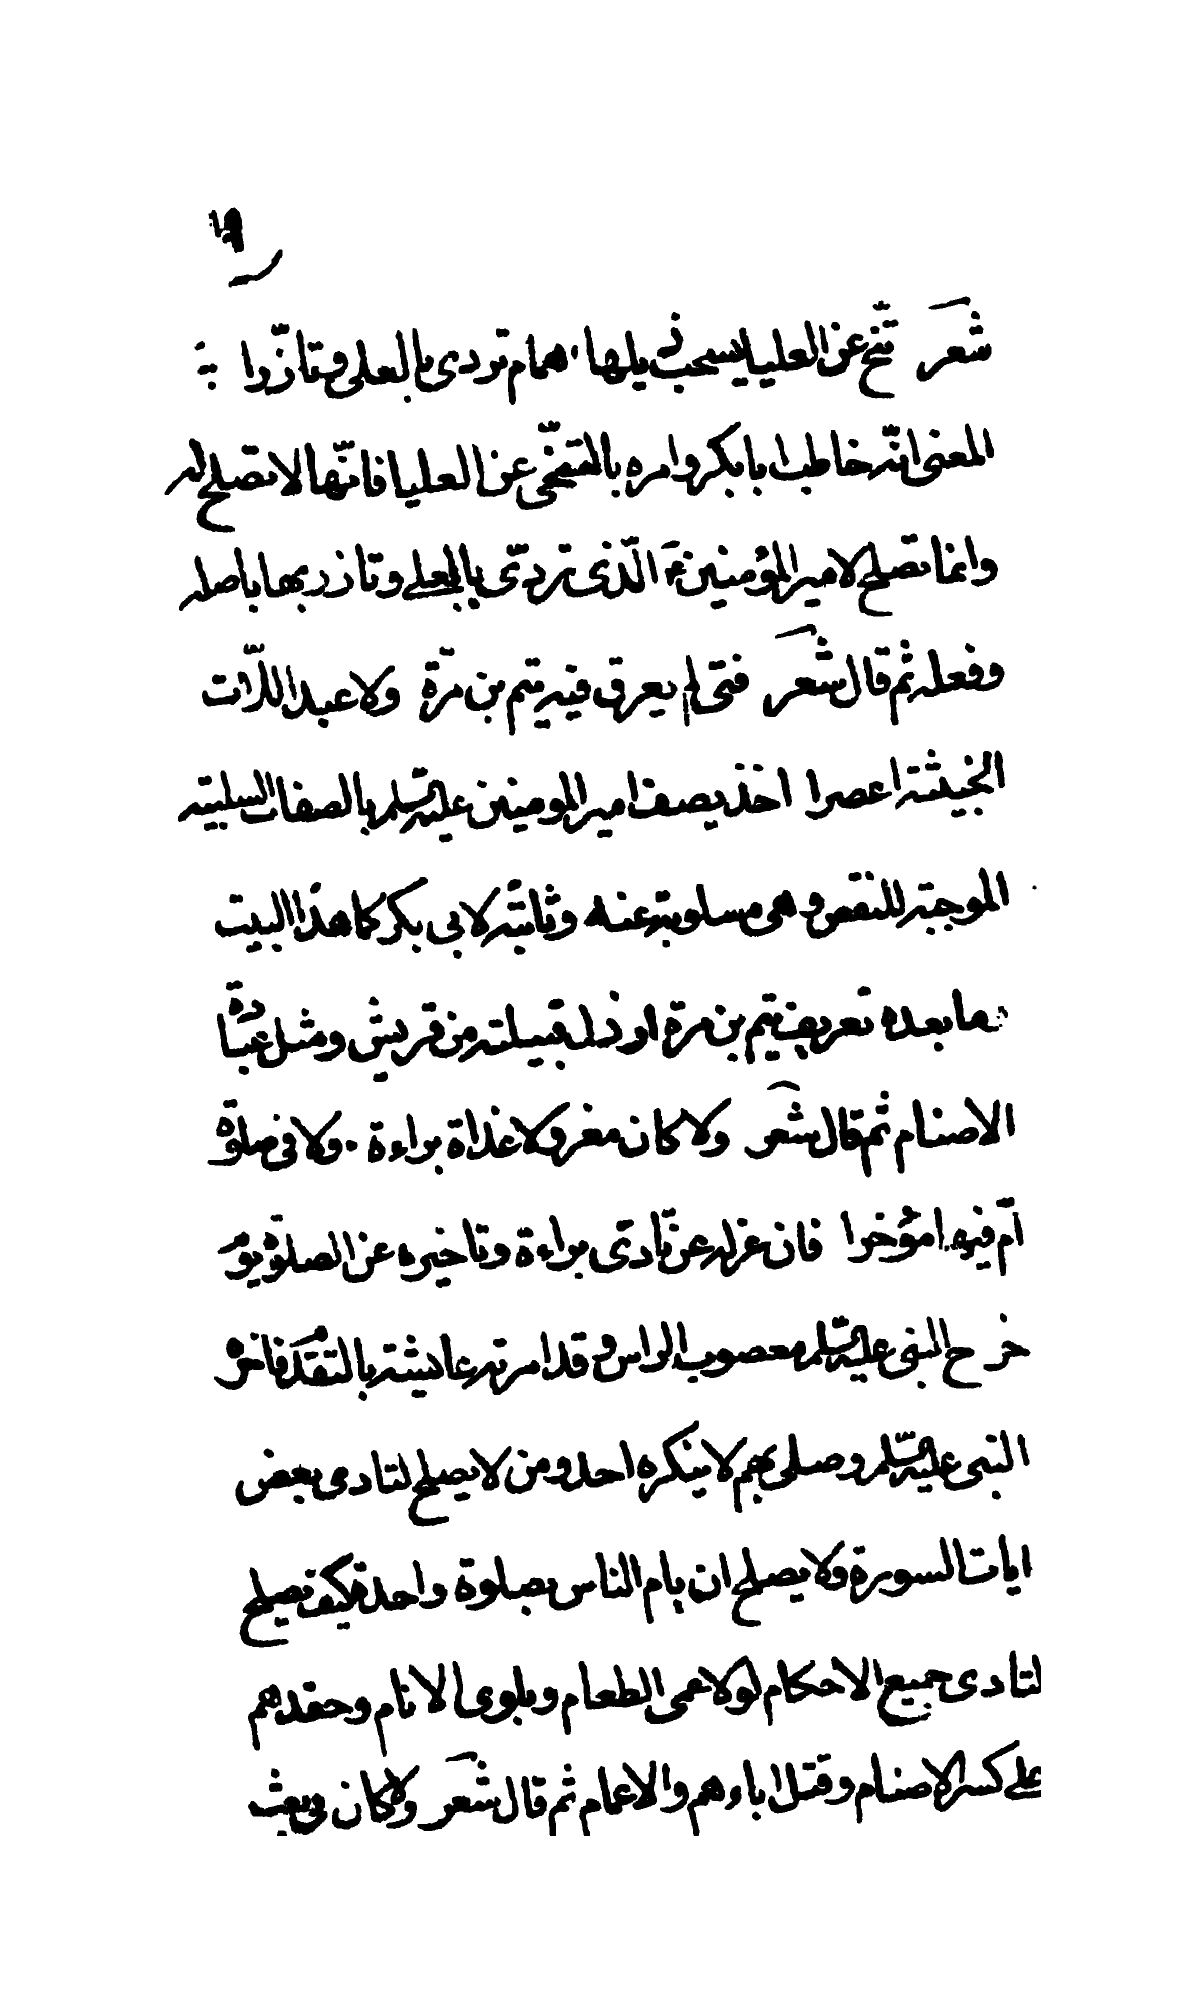 شعر تنح عن العليا يسحب ذيلها همام تردى بالعلى وتازرا
المعنى انه خاطب ابا بكر وامره بالتنحي عن العليا فانها لا تصلح له
وانما تصلح لامير المؤمنين ع الذى تردى بالعلى وتازر بها باصله
وفعله ثم قال شعر فتى لم يعرق فيه تيم بن مرة ولا عبد اللات
الخبيثة اعصرا اخذ يصف امير المومنين عليه السلم بالصفات السلبيته
الموجبة للنقص وهى مسلوبة عنه وثابتة لابى بكر كما هذا البيت
ما بعده تعريف تيم بن مرة ارذل قبيلته من قريش ومثل عبادة
الاصنام ثم قال شعر ولا كان معزولا غداة براءة ولا فى صلوة
ام فيها مؤخرا فان عزله عن تادى براءة وتاخيره عن الصلوة يوم
خرح النبى عليه السلم معصوب الراس وقد امرته عايشة بالتقدم فاخره
النبى عليه السلم وصلى بهم لا ينكره احد ومن لا يصلح لتادى بعض
ايات السورة ولا يصلح ان يام الناس بصلوة واحدة كيف تصلح
لتادى جميع الاحكام لولا عمى الطعام وبلوى الانام وحقدهم
على كسر الاصنام وقتل اباءهم والاعمام ثم قال شعر ولا كان فى بعث